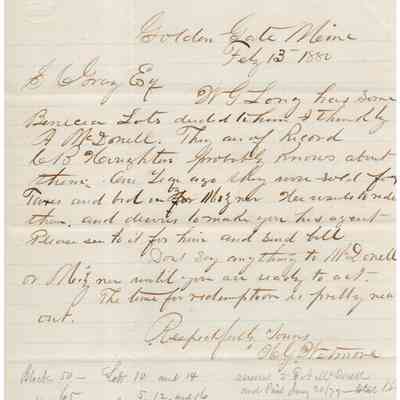 Golden Gate Mine
Feby 13th 1880
J C Gray Esq
W G Long has some
Benicia Lots deeded to him I think by
A McDonell. They are of Record
C B Houghton probably knows about
them. One Year ago they were sold for
Taxes and bid in for Mizner He wants to redeem
them and desires to make you his agent
Please see to it for him and send bill
Dont say anything to McDonell
or Mizner until you are ready to act.
The time for redemption is pretty near
out.
Respectfully Yours
H G Wetmore
Block 50 - Lots 10 and 14
65 5, 12, and 16
McDonell
and Jany 20/79